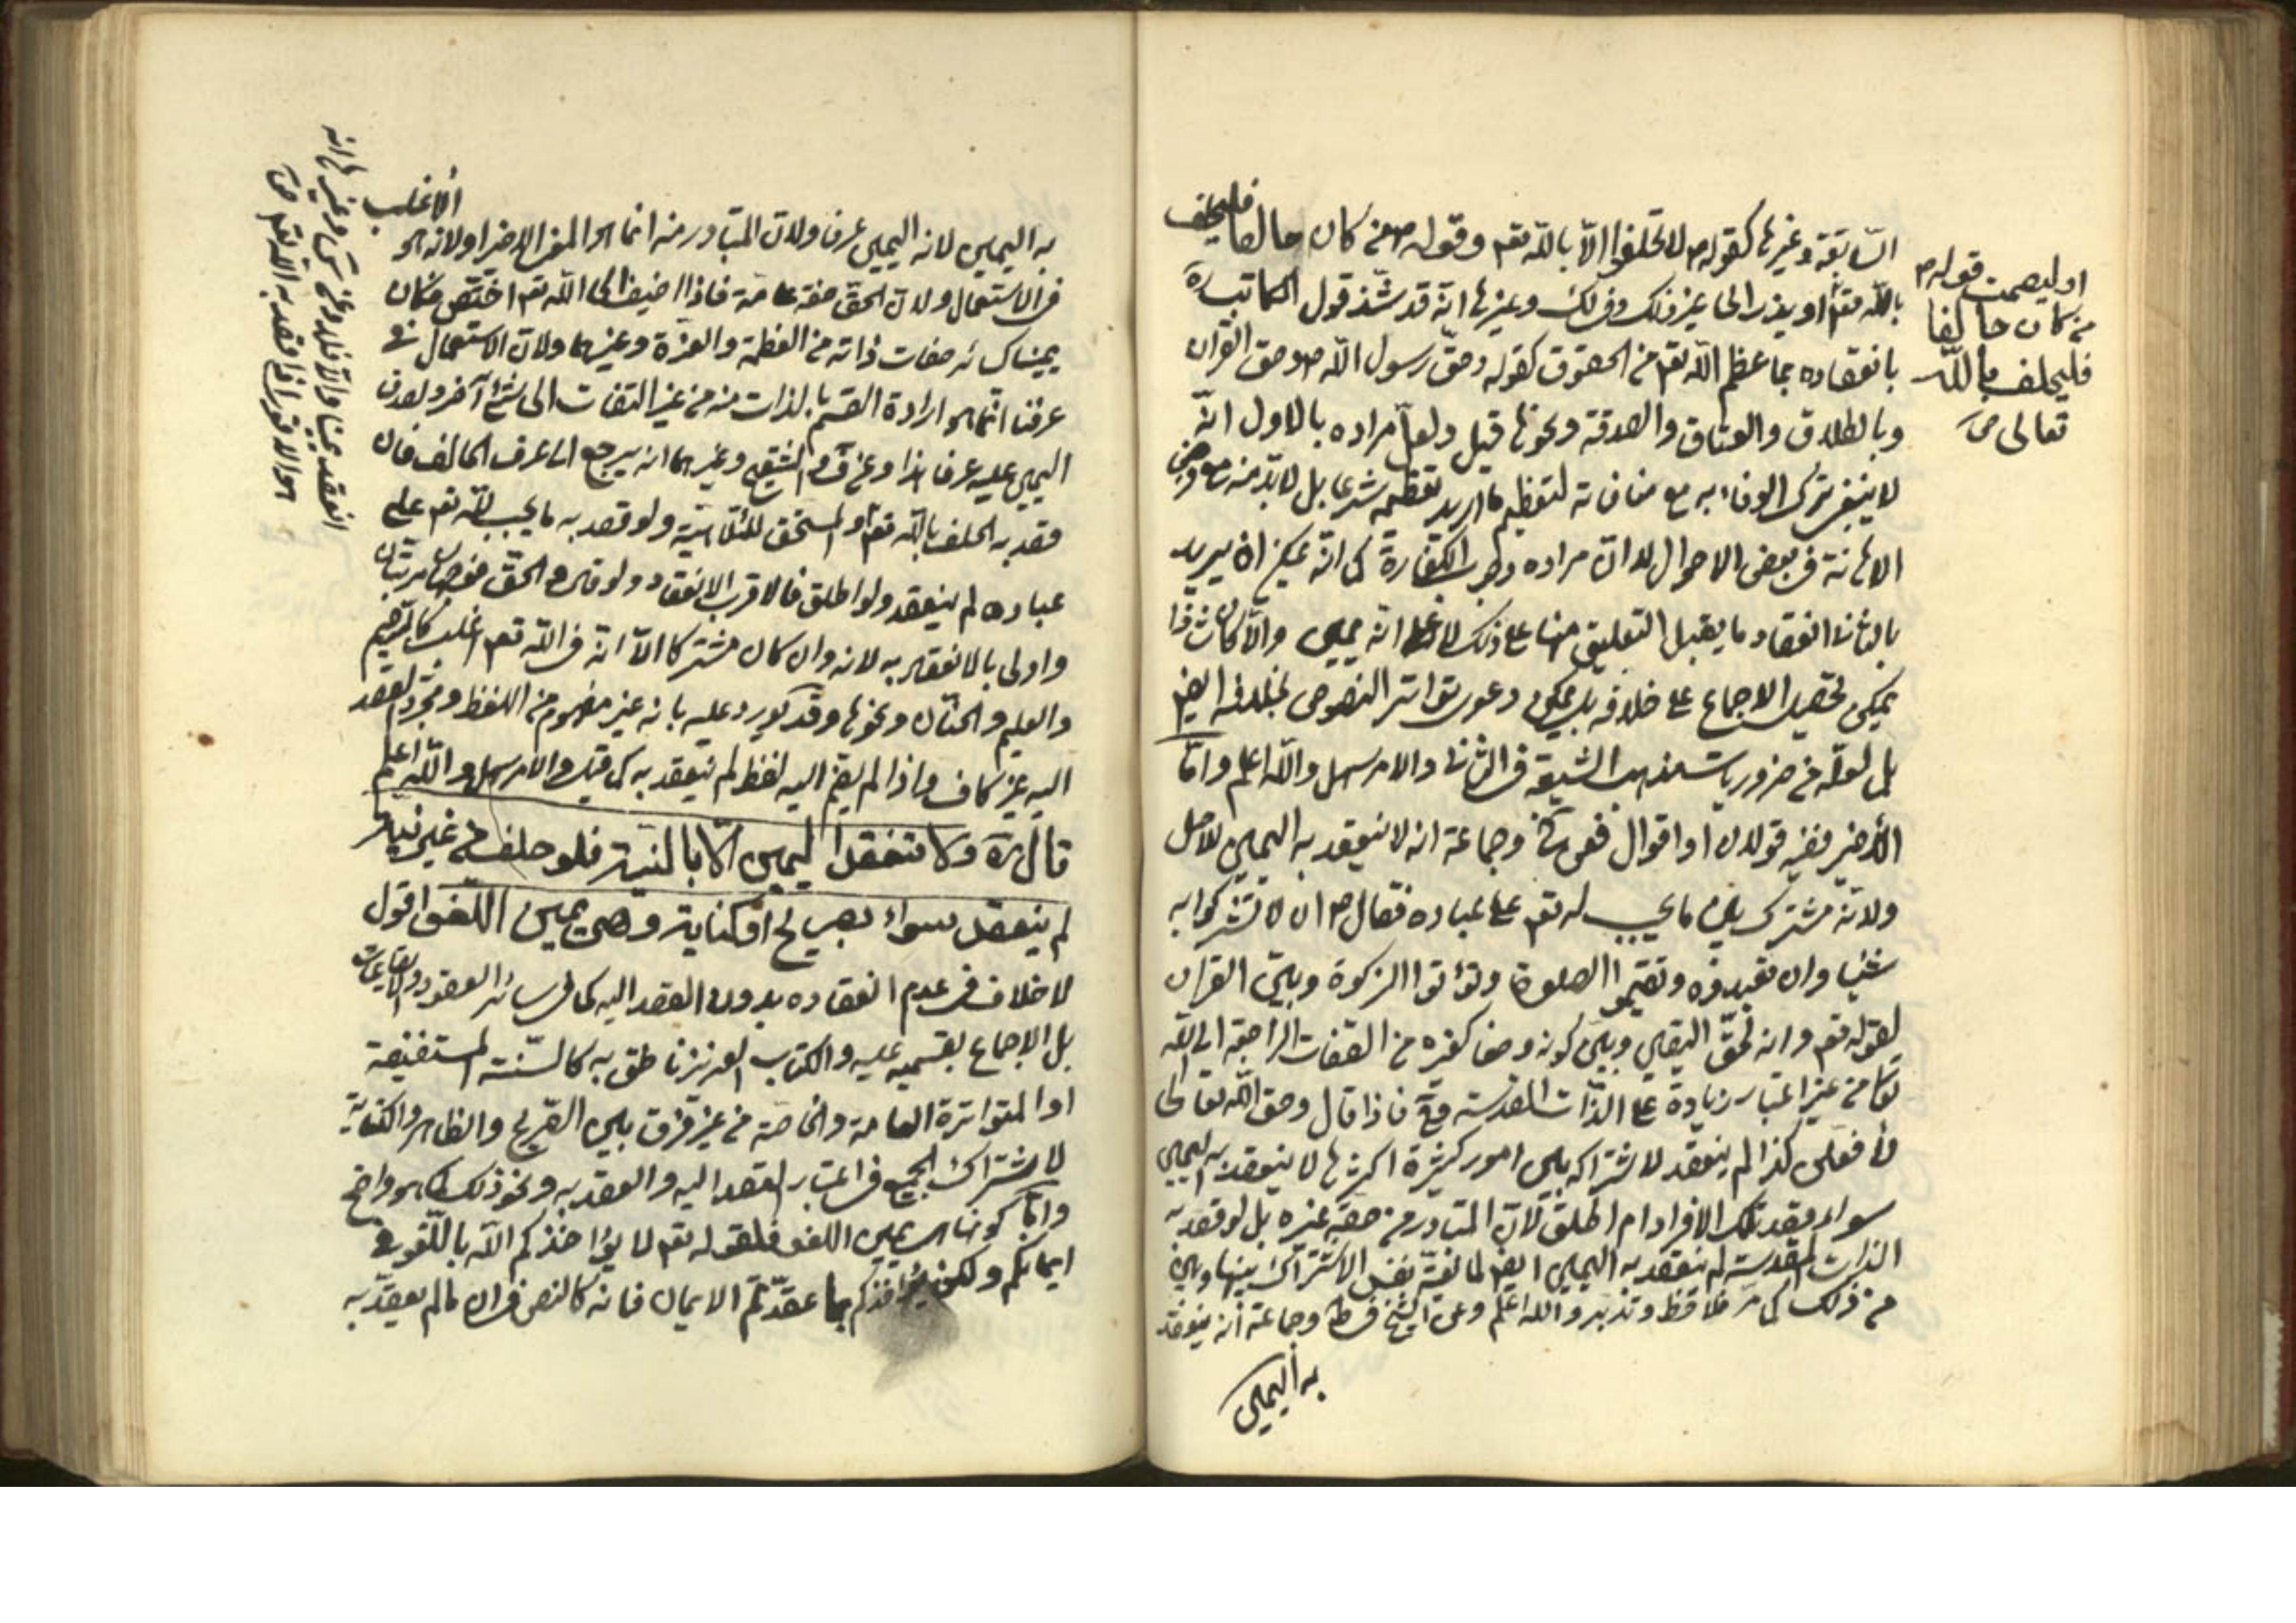 السابقة وغيرها كقوله ص لا تحلفوا الا بالله تعم وقوله ص من كان حالفا فليحلف
بالله تعم او يذر الى غير ذلك وفي لك وغيرها انه قد شذ قول الكاتب ره
بانعقاده بما عظم الله تعم من الحقوق كقوله وحق رسول الله ص وحق القرآن
وبالطلاق والعتاق والصدقة ونحوها قيل ولعل مراده بالاول انه
لا ينبغي ترك الوفاء به مع منافاته لتعظيم ما اريد تعظيمه شرعا بل لابد منه مع فرض
الاهانة في بعض الاحوال لا ان مراده وجوب الكفارة كما انه يمكن ان يريد
بالثاني انعقاد ما يقبل التعليق منها على ذلك لا على انه يمين والا كان شاذا
يمكن تحصيل الاجماع على خلافه بل يمكن دعوى تواتر النصوص بخلافه ايضا
بل لعله من ضروريات مذهب الشيعة في الثاني والامر سهل والله اعلم واما
الاخير ففيه قولان او اقوال فعن وجماعة انه لا ينعقد به اليمين للاصل
ولانه مشترك بين ما يجب له تعم على عباده فقال ص ان لا تشركوا به
شيئا وان تعبدوه وتقيموا الصلوة وتؤتوا الزكوة وبين القرآن
لقوله تعم وانه لحق اليقين وبين كونه وصفا كغيره من الصفات الراجعة الى الله
تعا من غير اعتبار زيادة على الذات المقدسة فاذا قال وحق الله تعالى
لافعلن كذا لم ينعقد لاشتراكه بين امور كثيرة اكثرها لا ينعقد به اليمين
سواء قصد تلك الافراد ام اطلق لان المتبادر من حقه غيره بل لو قصد به
الذات المقدسة لم ينعقد به اليمين ايضا لمانعية نفس الاشتراك بينها وبين
من ذلك كما مر فلاحظ وتدبر والله اعلم وعن الشيخ في ط وجماعة انه ينعقد
به اليمين
او ليصمت قوله ص
من كان حالفا
فليحلف بالله
تعالى ص
به اليمين لانه اليمين عرفا ولان المتبادر منه انما هو المعنى الاخير او لانه هو الاغلب
في الاستعمال ولان الحق صفة عامة فاذا اضيف الى الله تعم اختص فكان
يمينا كسائر صفات ذاته من العظمة والعزة وغيرهما ولان الاستعمال في
عرفنا انما هو ارادة القسم بالذات منه من غير التفات الى شئ آخر ولصدق
اليمين عليه عرفا هذا وعن التنقيح وغيرهما انه يرجع الى عرف الحالف فان
قصد به الحلف بالله تعم او المستحق للالهية ولو قصد به ما يجب لله تعم على
عباده لم ينعقد ولو اطلق فالاقرب الانعقاد ولو قال والحق فوجهان مرتبان
واولى بالانعقاد به لانه وان كان مشتركا الا انه في الله تعم اغلب كالرحيم
والعليم والحنان ونحوها وقد يورد عليه بانه غير مفهوم من اللفظ ومجرد القصد
اليه غير كاف واذا لم يضم اليه لفظ لم ينعقد به كما قيل والامر سهل والله اعلم
قال ره ولا تنعقد اليمين الا بالنية فلو حلف من غير نية
لم ينعقد سواء بصريح او كناية وهي يمين اللغو اقول
لا خلاف في عدم انعقاده بدون القصد اليه كما في سائر العقود والايقاعات
بل الاجماع بقسميه عليه والكتاب العزيز ناطق به كالسنة المستفيضة
او المتواترة العامة والخاصة من غير فرق بين الصريح والظاهر والكناية
لاشتراك الجميع في اعتبار القصد اليه والعقد به ونحو ذلك كما هو واضح
واما كونها هي يمين اللغو فلقوله تعم لا يؤاخذكم الله باللغو في
ايمانكم ولكن يؤاخذكم بما عقدتم الايمان فانه كالنص في ان ما لم يعقد به